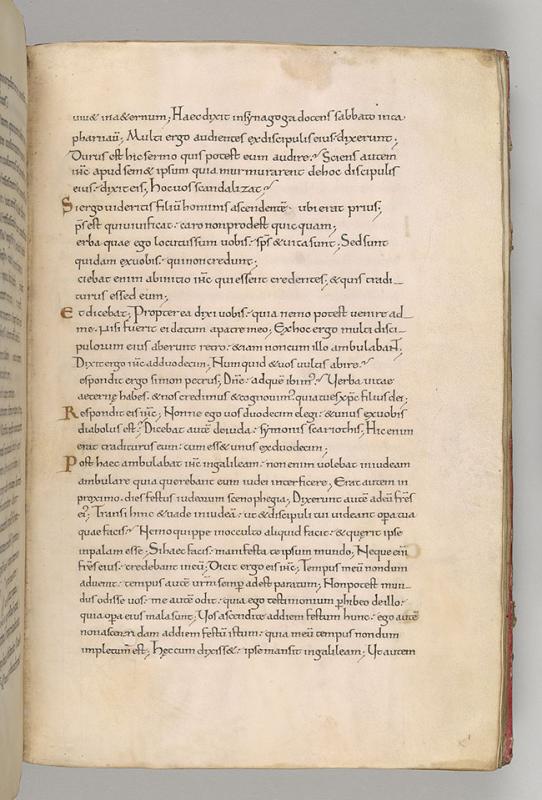 viu& in a&ernum; Haec dixit in synagoga docens sabbato in ca
pharnaū; Multi ergo audientes ex discipulis eius dixerunt;
Durus est hic sermo quis potest eum audire? Sciens autem
iħc apud sem& ipsum quia murmurarent de hoc discipulis
eius dixit eis; Hoc vos scandalizat?
Si ergo videritis filiū hominis ascendentē ubi erat prius;
sp̄s est qui vivificat caro non prodest quicquam;
erba quae ego locutus sum vobis sp̄s & vita sunt; Sed sunt
quidam ex vobis qui non credunt;
ciebat enim ab initio iħc qui essent credentes; & quis tradi
turus esset eum;
Et dicebat; Propterea dixi vobis quia nemo potest venire ad
me nisi fuerit ei datum a patre meo; Ex hoc ergo multi disci
pulorum eius abierunt retro & iam non cum illo ambulabant;
Dixit ergo iħc ad duodecim; Numquid & vos vultis abire?
espondit ergo simon petrus; Dñe ad quē ibim'? Verba vitae
aeternę habes & nos credimus & cognovim' quia tu es xp̄c filius dei;
Respondit eis iħc; Nonne ego vos duodecim elegi & unus ex vobis
diabolus est? Dicebat autē de iuda symonis scariothis; Hic enim
erat traditurus eum cum ess& unus ex duodecim;
Post haec ambulabat iħc in galileam non enim volebat in iudeam
ambulare quia querebant eum iudei interficere; Erat autem in
proximo dies festus iudeorum scenophegia; Dixerunt autē ad eū fr̄es
ei'; Transi hinc & vade in iudeā ut & discipuli tui videant opera tua
quae facis; Nemo quippe in occulto aliquid facit & quęrit ipse
in palam esse; Si haec facis manifesta te ipsum mundo; Neque eni
fr̄es eius credebant in eū; Dicit ergo eis iħc; Tempus meū nondum
advenit tempus autē vr̄m semp adest paratum; Non potest mun
dus odisse vos me autē odit quia ego testimonium phibeo de illo
quia opera eius mala sunt; Vos ascendite ad diem festum hunc ego autē
non ascendam ad diem festū istum quia meū tempus nondum
impletum est; Hęc cum dixiss& ipse mansit in galileam; Ut autem